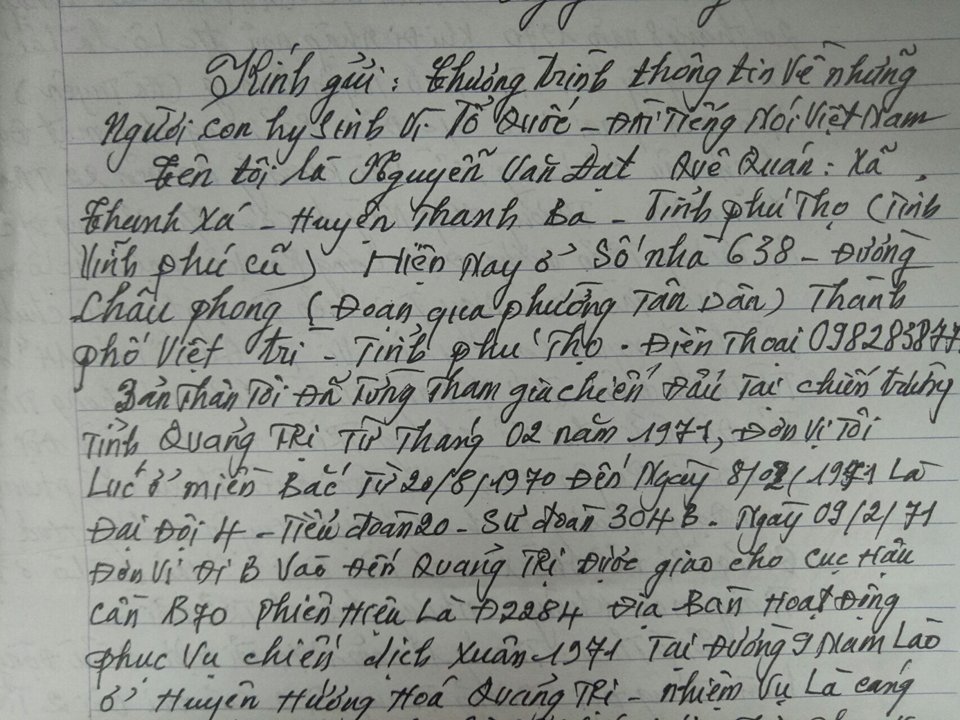 Kính gửi: Chương trình thông tin về những
Người con hy sinh vì Tổ Quốc - Đài Tiếng Nói Việt Nam
Tên tôi là Nguyễn Văn Đạt Quê Quán: Xã
Thanh Xá - Huyện Thanh Ba - Tỉnh phú Thọ (Tỉnh
Vĩnh phú cũ) Hiện Nay ở Số nhà 638 - Đường
Châu phong (Đoạn qua phường Tân Dân) Thành
phố Việt trì - Tỉnh phú Thọ. Điện Thoại 098283877
Bản Thân Tôi Đã Từng Tham gia chiến Đấu Tại chiến trường
Tỉnh Quảng Trị Từ Tháng 02 năm 1971, Đơn vị Tôi
Lúc ở miền Bắc Từ 20/8/1970 Đến Ngày 8/02/1971 Là
Đại Đội 4 - Tiểu đoàn 20 - Sư đoàn 304B. Ngày 09/2/71
Đơn vị Đi B Vào Đến Quảng Trị Được giao cho Cục Hậu
cần B70 phiên Hiệu Là Đ2284 Địa Bàn Hoạt Động
phục vụ chiến dịch Xuân 1971 Tại Đường 9 Nam Lào
ở Huyện Hướng Hoá Quảng Trị - nhiệm vụ Là cáng